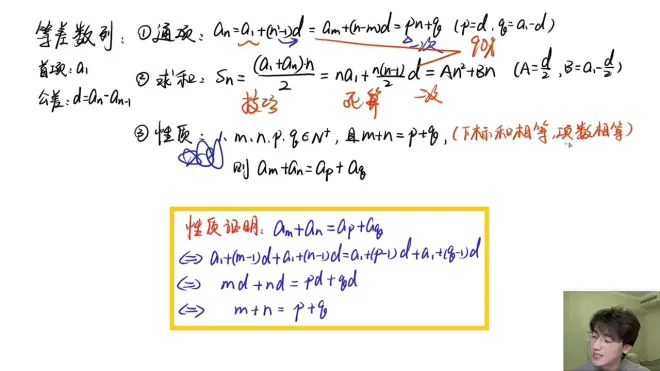 等差数列: ①通项: aₙ=a₁+(n-1)d=aₘ+(n-m)d=pn+q (p=d, q=a₁-d)
一次 90%
首项: a₁
② 求和: Sₙ=(a₁+aₙ)n/2=na₁+n(n-1)/2 d=An²+Bn (A=d/2, B=a₁-d/2)
公差: d=aₙ-aₙ₋₁
技巧 死算 二次
③ 性质: 1. m.n.p.q∈N⁺, 且m+n=p+q, (下标和相等,项数相等)
则 aₘ+aₙ=aₚ+a_q
性质证明: aₘ+aₙ=aₚ+a_q
⇔ a₁+(m-1)d+a₁+(n-1)d=a₁+(p-1)d+a₁+(q-1)d
⇔ md+nd=pd+qd
⇔ m+n=p+q